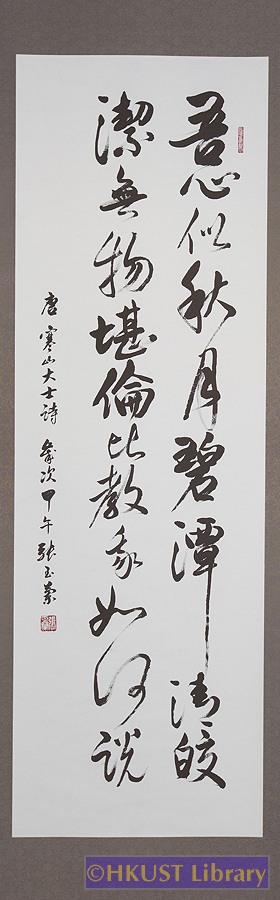 吾心似秋月碧潭清皎
潔無物堪倫比教我如何說
唐寒山大士詩歲次甲午張玉
©HKUST Library